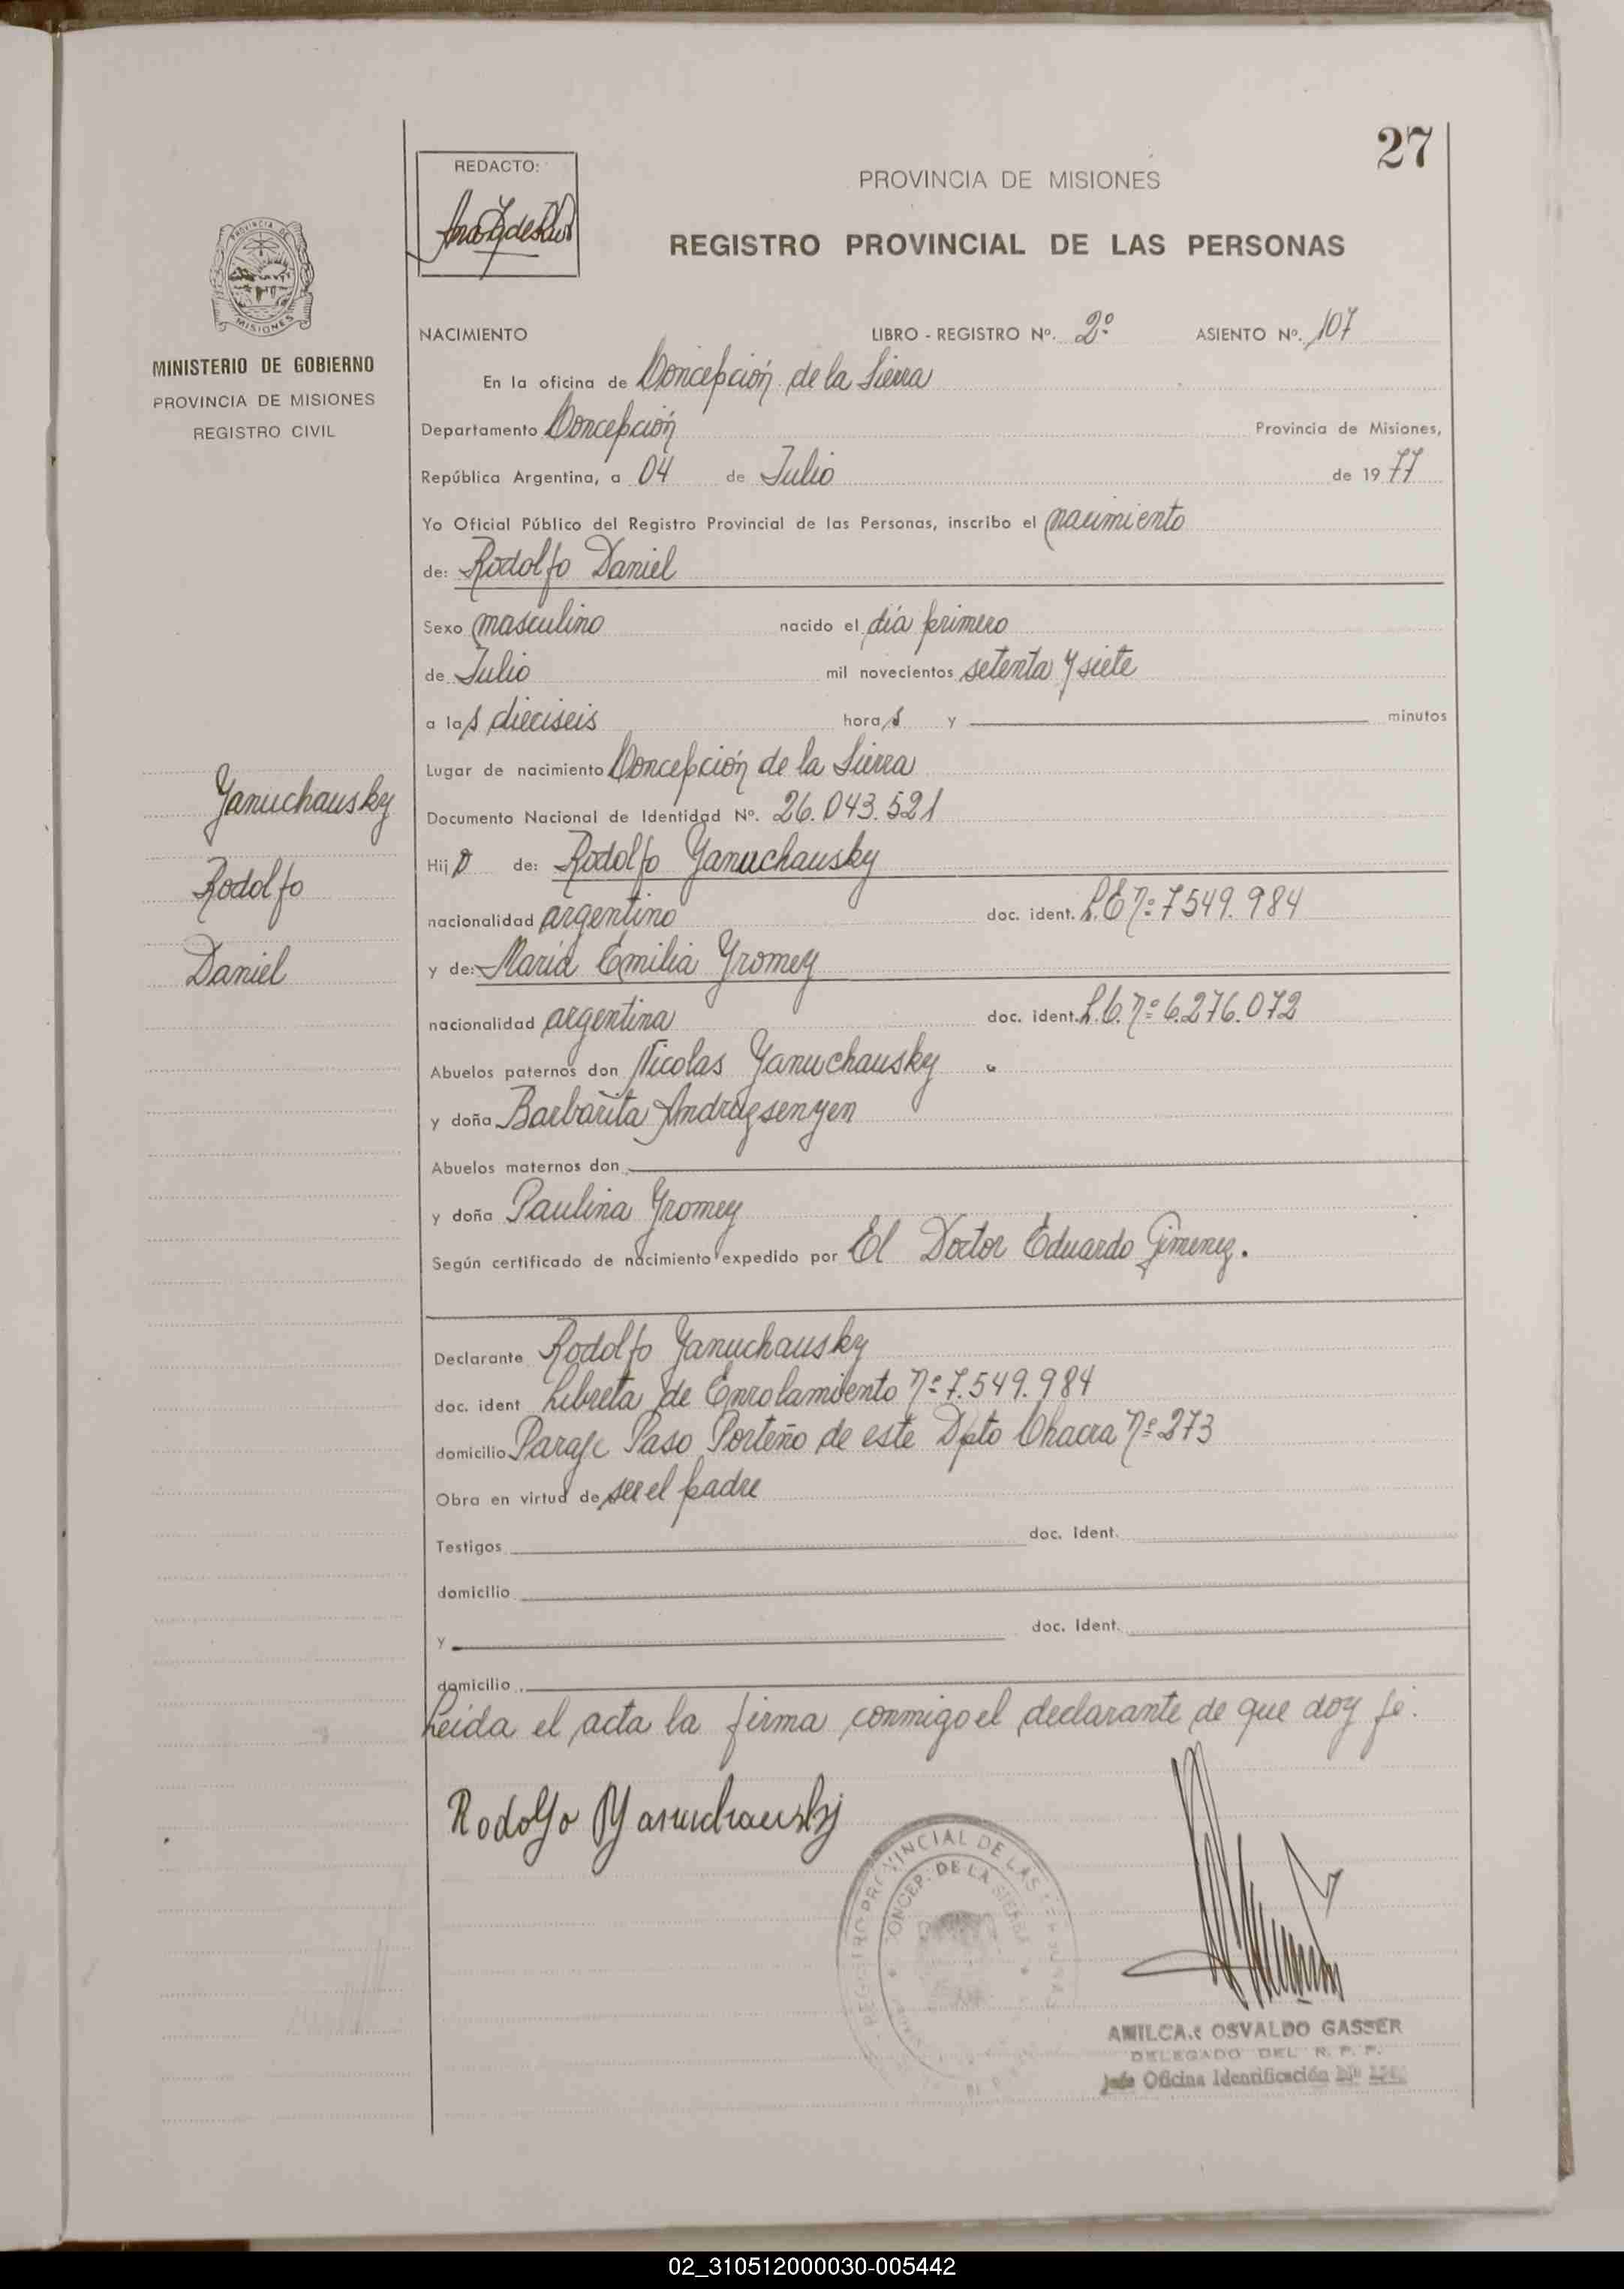 27
REDACTO:
PROVINCIA DE MISIONES
REGISTRO PROVINCIAL DE LAS PERSONAS
PROVINCIA DE MISIONES
MINISTERIO DE GOBIERNO
PROVINCIA DE MISIONES
REGISTRO CIVIL
NACIMIENTO LIBRO - REGISTRO Nº. 2º ASIENTO Nº. 107
En la oficina de Concepción de la Sierra
Departamento Concepción Provincia de Misiones,
República Argentina, a 04 de Julio de 1977
Yo Oficial Público del Registro Provincial de las Personas, inscribo el nacimiento
de: Rodolfo Daniel
Sexo masculino nacido el día primero
de Julio mil novecientos setenta y siete
a las dieciseis horas y minutos
Lugar de nacimiento Concepción de la Sierra
Documento Nacional de Identidad Nº. 26.043.521
Hijo de: Rodolfo Yanuchausky
nacionalidad argentino doc. ident. L.E nº 7549.984
y de: María Emilia Yromey
nacionalidad argentina doc. ident. L.C. nº 6.276.072
Abuelos paternos don Nicolas Yanuchausky
y doña Barbarita
Abuelos maternos don
y doña Paulina Yromey
Según certificado de nacimiento expedido por El Doctor Eduardo Gimenez.
Yanuchausky
Rodolfo
Daniel
Declarante Rodolfo Yanuchausky
doc. ident Libreta de Enrolamiento nº 7.549.984
domicilio Paraje Paso Porteño de este Dpto Chacra nº 273
Obra en virtud de ser el padre
Testigos doc. Ident.
domicilio
y doc. Ident.
domicilio
Leida el acta la firma conmigo el declarante de que doy fé.
Rodolfo Yanuchausky
REGISTRO PROVINCIAL DE LAS PERSONAS
CONCEP. DE LA SIERRA
AMILCAR OSVALDO GASSER
DELEGADO DEL R. P. P.
Jefe Oficina Identificación Nº
02_310512000030-005442